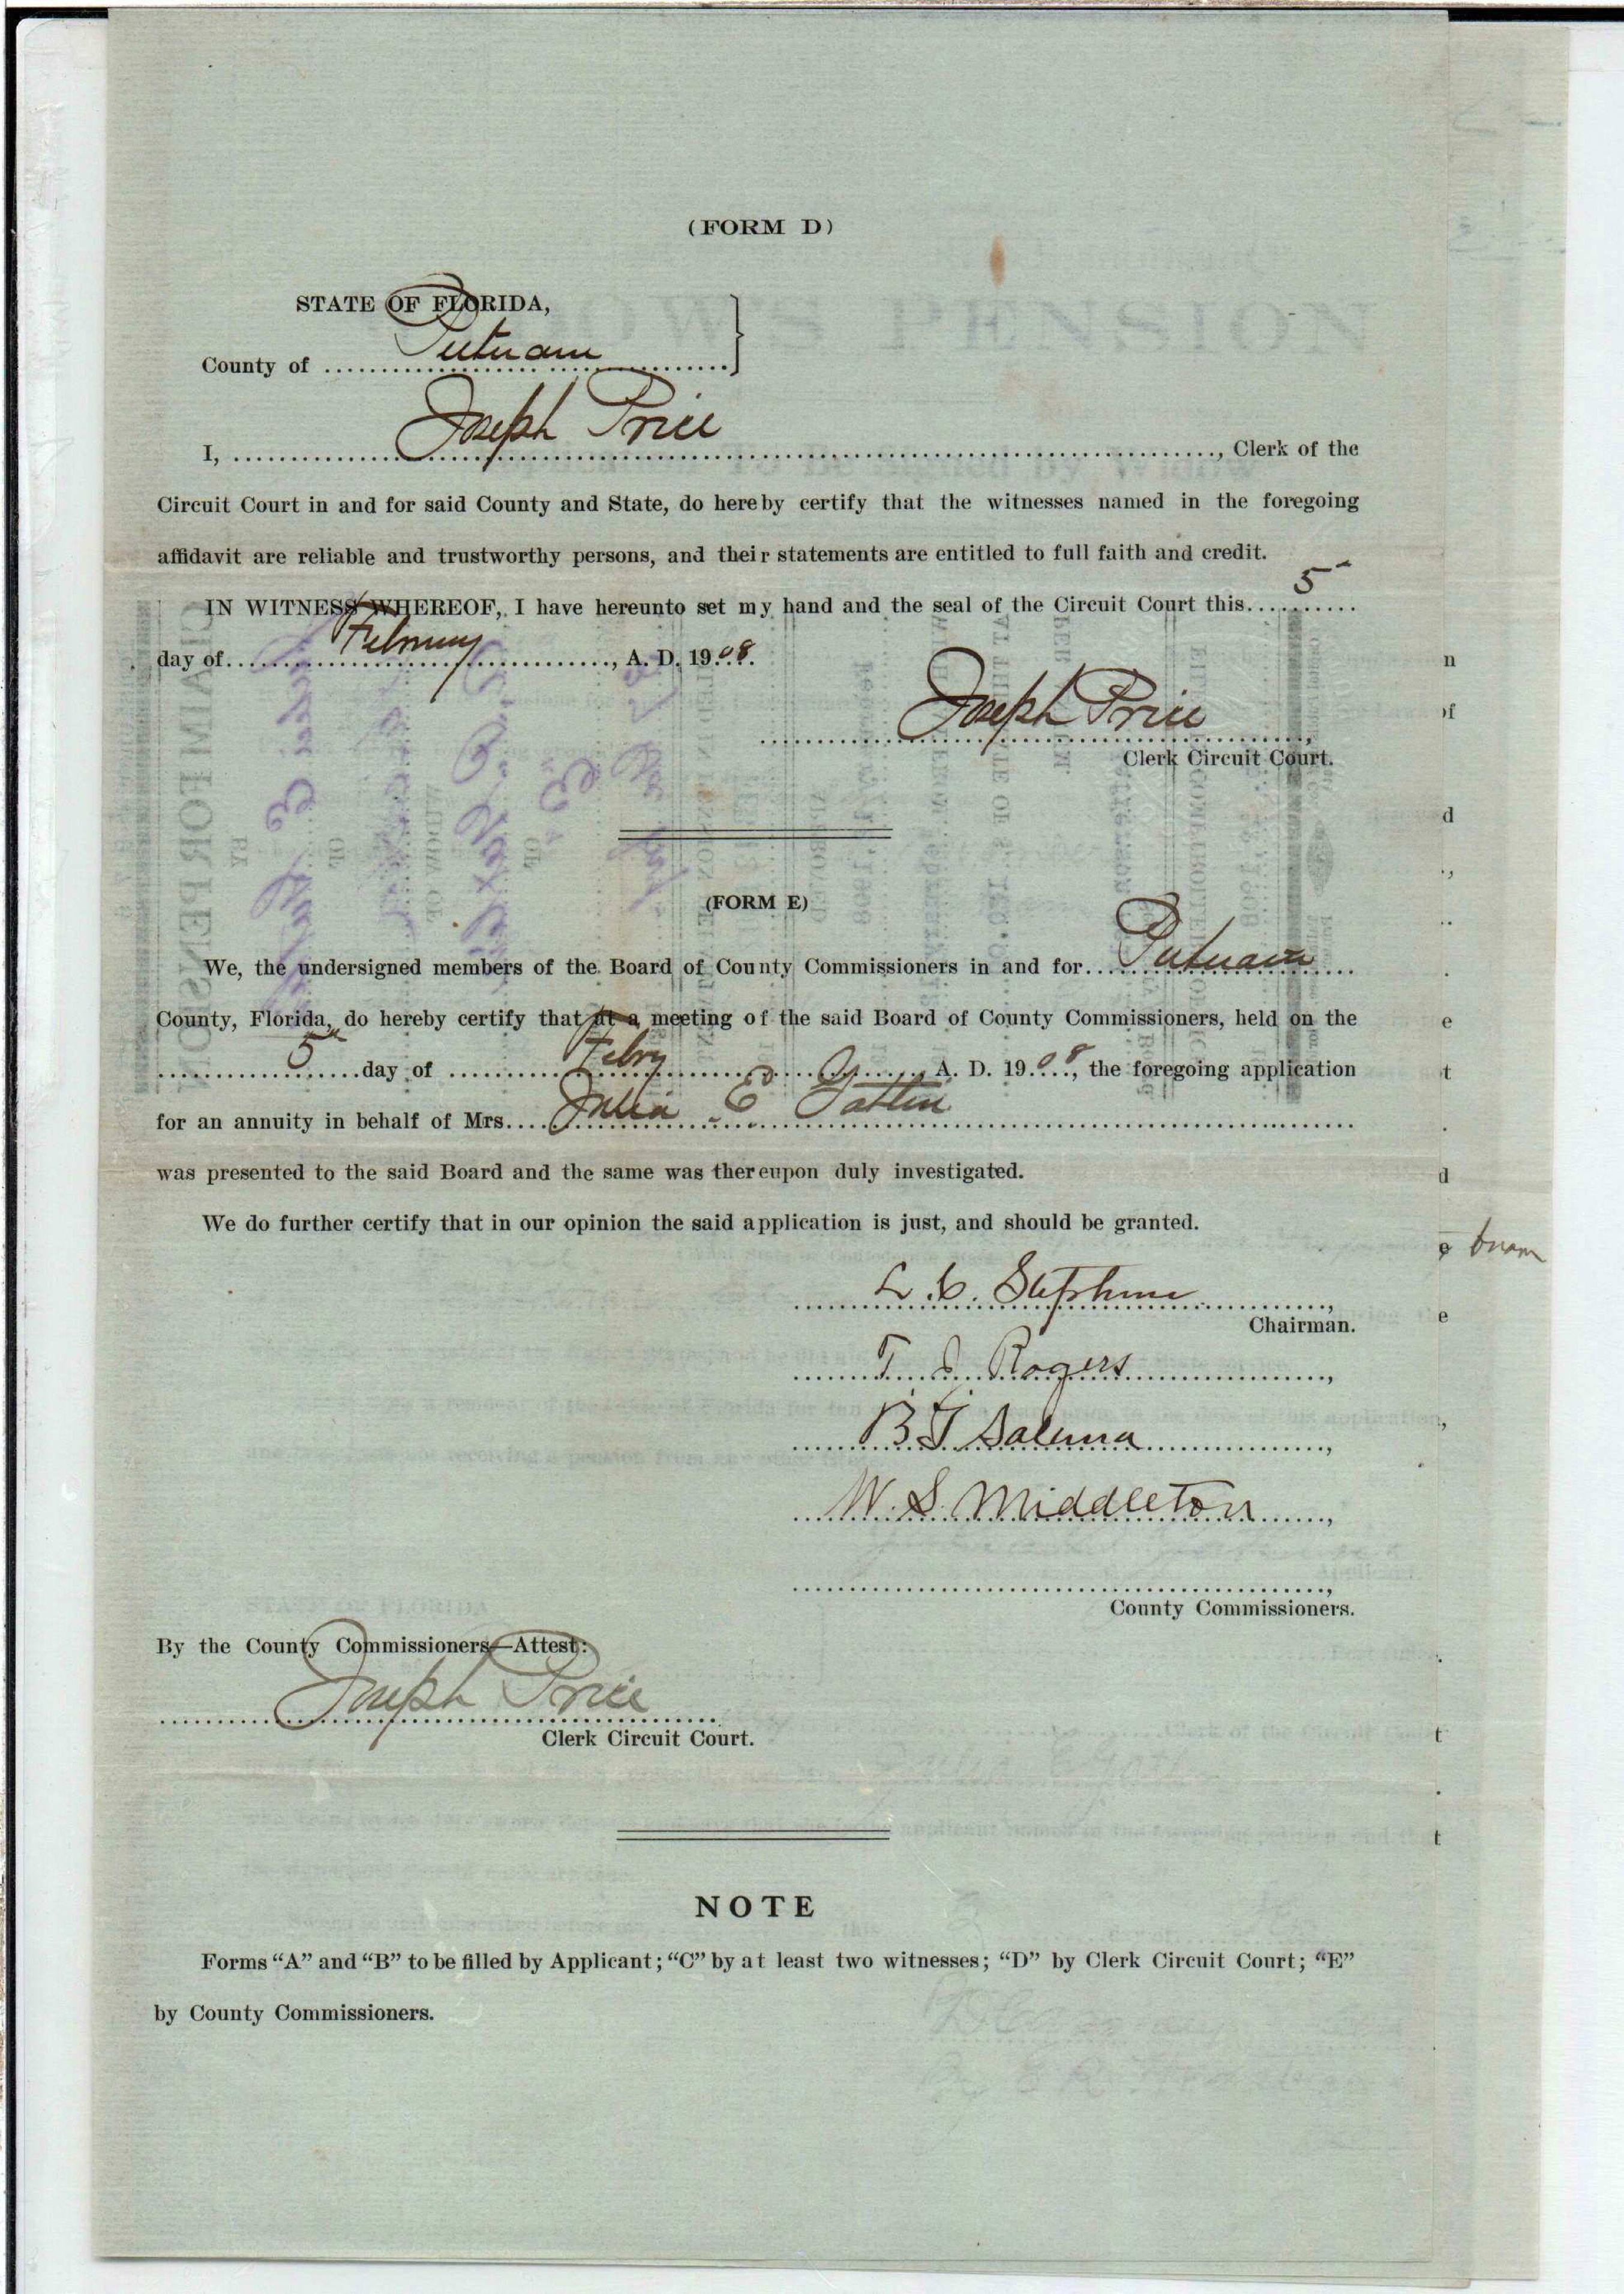 (FORM D)
STATE OF FLORIDA,
County of Putnam
I, Joseph Price, Clerk of the
Circuit Court in and for said County and State, do hereby certify that the witnesses named in the foregoing
affidavit are reliable and trustworthy persons, and their statements are entitled to full faith and credit.
IN WITNESS WHEREOF, I have hereunto set my hand and the seal of the Circuit Court this 5
day of February, A. D. 1908.
Joseph Price
Clerk Circuit Court.
(FORM E)
We, the undersigned members of the Board of County Commissioners in and for Putnam
County, Florida, do hereby certify that at a meeting of the said Board of County Commissioners, held on the
5 day of Febry A. D. 1908, the foregoing application
for an annuity in behalf of Mrs. Julia E
was presented to the said Board and the same was thereupon duly investigated.
We do further certify that in our opinion the said application is just, and should be granted.
Chairman.
T. J. Rogers
B T
W. S. Middleton
County Commissioners.
By the County Commissioners—Attest:
Joseph Price
Clerk Circuit Court.
NOTE
Forms “A” and “B” to be filled by Applicant; “C” by at least two witnesses; “D” by Clerk Circuit Court; “E”
by County Commissioners.